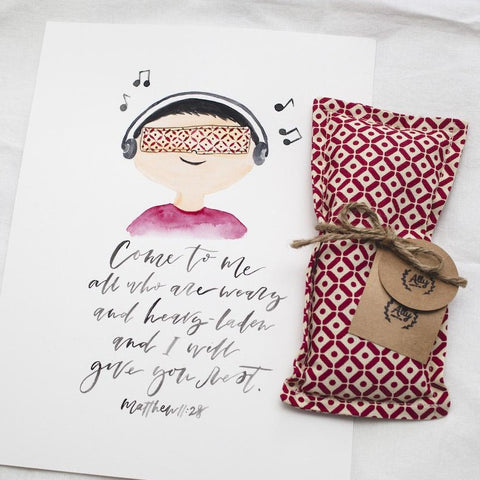 Come to me
all who are weary
and heavy-laden
and I will
give you rest.
matthew 11:28
Ally
Ally